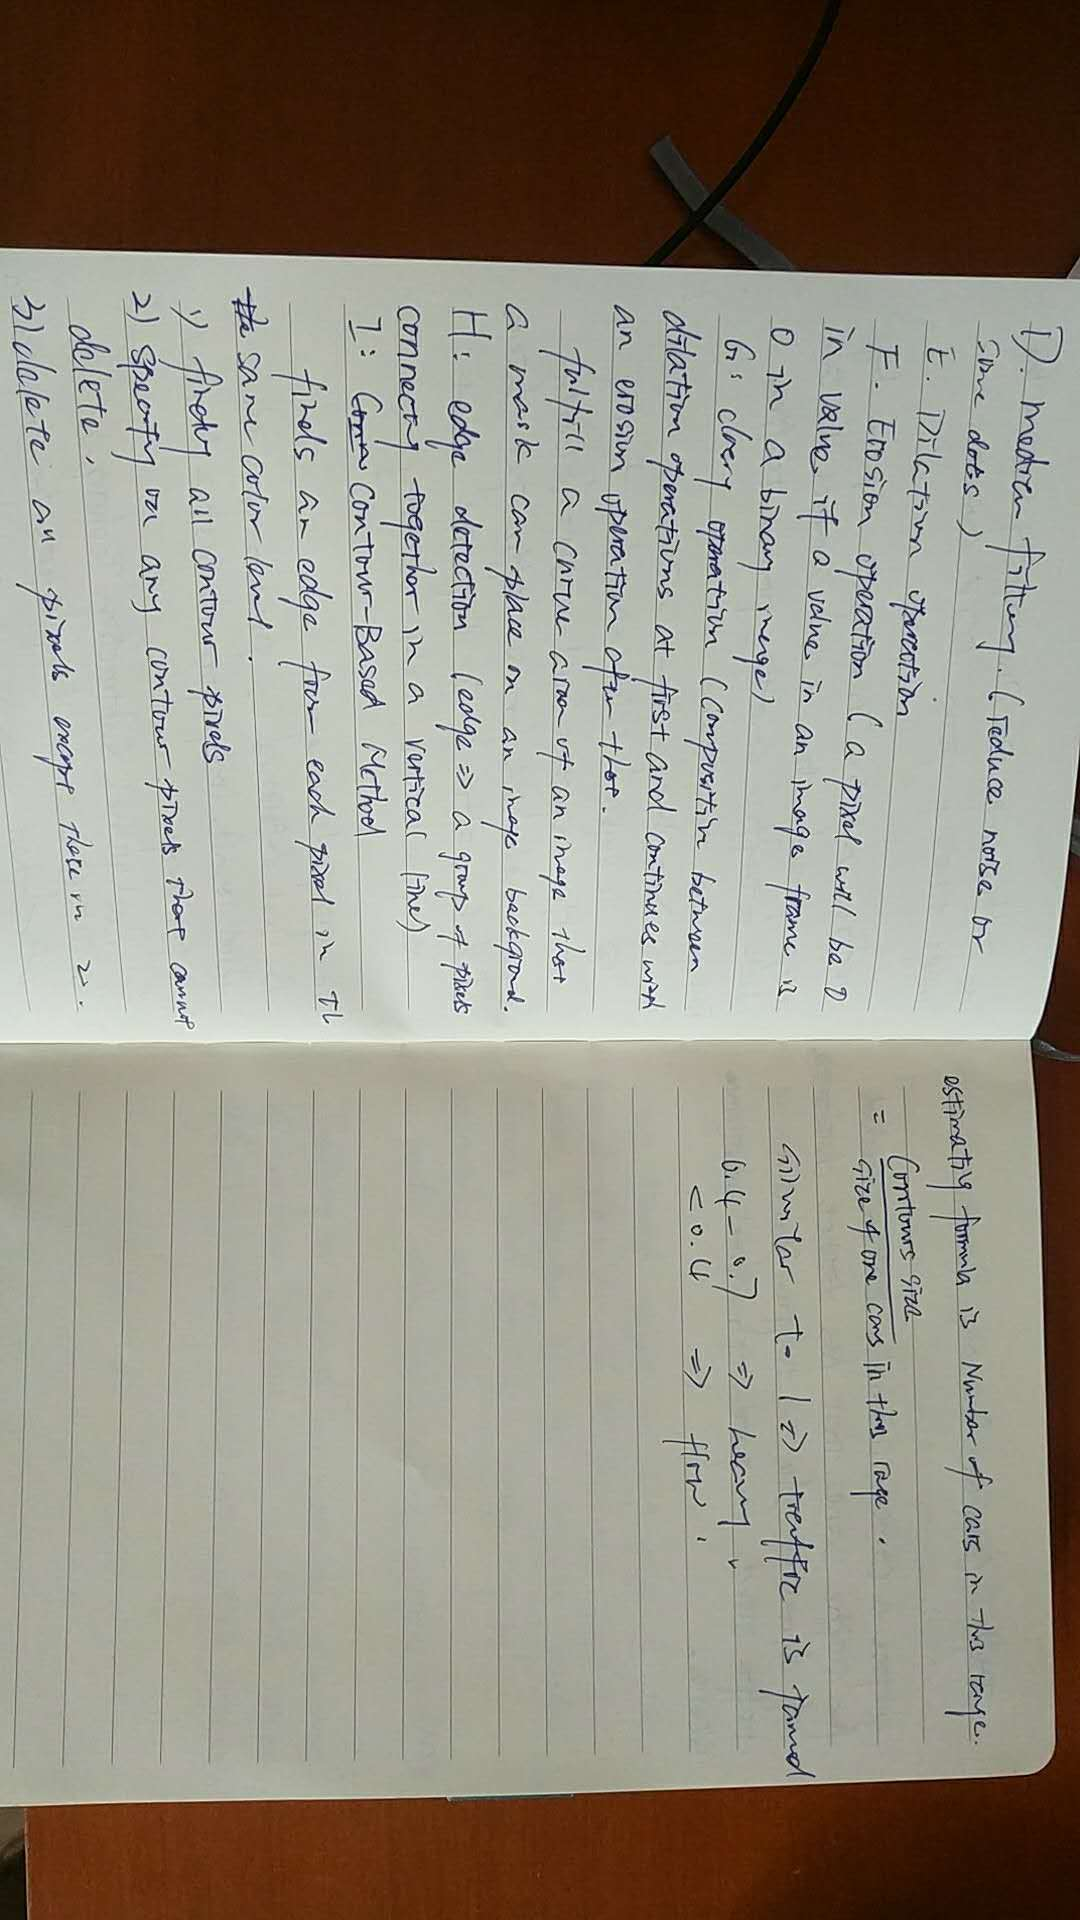 D. Median filtering. (reduce noise or
some dots)
E. Dilation operation
F. Erosion operation (a pixel will be 0
in value if a value in an images frame is
0 in a binary image)
G: closery operation (composition between
dilation operations at first and continues with
an erosion operation after that.
fulfill a curve area of an image that
a mask can place on an image background.
H: edge detection (edge => a group of pixels
connecting together in a vertical line)
I: Contour-Based Method
finds an edge from each pixel in th
the same color level.
1) finding all contour pixels
2) specify on any contour pixels that cannot
delete.
3) delete all pixels except those in 2.
estimating formula is Number of cars in this range.
= Contours size
size of one cars in this rage.
similar to 1 => traffic is jamed
0.4 - 0.7 => heavy.
< 0.4 => flow.